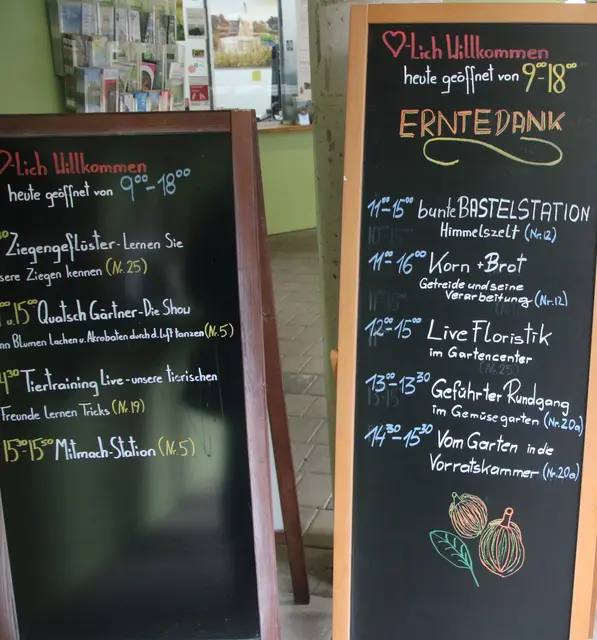 -Lich Willkommen
heute geöffnet von 9⁰⁰-18⁰⁰
Ziegengeflüster-Lernen Sie
sere Ziegen kennen (Nr. 25)
u. 15⁰⁰ Quatsch Gärtner-Die Show
nn Blumen Lachen u. Akrobaten durch d. Luft tanzen (Nr. 5)
4³⁰ Tiertraining Live-unsere tierischen
Freunde Lernen Tricks (Nr. 19)
15³⁰-15⁵⁰ Mitmach-Station (Nr. 5)
-Lich Willkommen
heute geöffnet von 9⁰⁰-18⁰⁰
ERNTEDANK
11⁰⁰-15⁰⁰ bunte BASTELSTATION
Himmelszelt (Nr. 12)
11⁰⁰-16⁰⁰ Korn + Brot
Getreide und seine
Verarbeitung (Nr. 12)
12⁰⁰-15⁰⁰ Live Floristik
im Gartencenter
13⁰⁰-13³⁰ Geführter Rundgang
im Gemüsegarten (Nr. 20a)
14³⁰-15³⁰ Vom Garten in die
Vorratskammer (Nr. 20a)